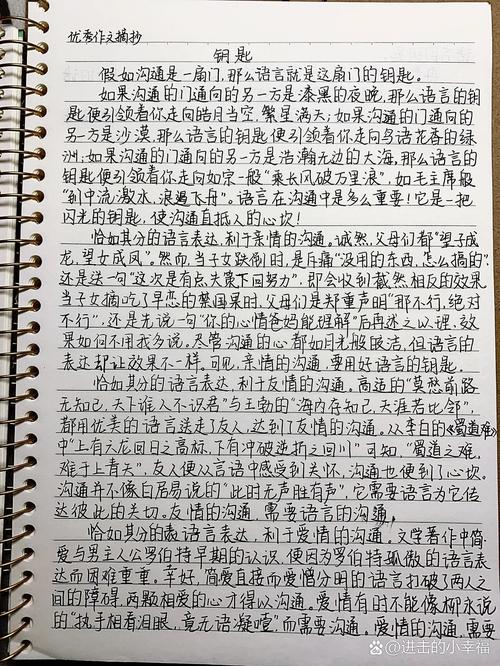 优秀作文摘抄
钥匙
假如沟通是一扇门,那么语言就是这扇门的钥匙。
如果沟通的门通向的另一方是漆黑的夜晚,那么语言的钥
匙便引领着你走向皓月当空,繁星满天;如果沟通的门通向的
另一方是沙漠,那么语言的钥匙便引领着你走向鸟语花香的绿
洲;如果沟通的门通向的另一方是浩瀚无边的大海,那么语言的
钥匙便引领着你走向如宗一般“乘长风破万里浪”,如毛主席般
“到中流激水,浪遏飞舟”。语言在沟通中是多么重要!它是一把
闪光的钥匙,使沟通直抵人的心坎!
恰如其分的语言表达,利于亲情的沟通。诚然,父母们都“望子成
龙,望女成凤”。然而,当子女跌倒时,是斥骂“没用的东西,怎么搞的”
还是送一句“这次是有点失策下回努力”,即会收到截然相反的效果
当子女摘吃了早恋的禁国果时,父母们是郑重声明“那不行,绝对
不行”,还是先说一句“你的心情爸妈能理解”后再述之以理,效
果如何不用我多说。尽管沟通的心都如月光般皎洁,但语言的
表达却让效果不一样。可见,亲情的沟通,要用好语言的钥匙。
恰如其分的语言表达,利于友情的沟通。高适的“莫愁前路
无知己,天下谁人不识君”与王勃的“海内存知己,天涯若比邻”,
都用优美的语言送走了友人,达到了友情的沟通。从李白的《蜀道难》
中“上有六龙回日之高标,下有冲破逆折之回川”可知,“蜀道之难,
难于上青天”,友人便从言语中感受到关怀,沟通也便到了心坎。
沟通并不像白居易说的“此时无声胜有声”,它需要语言为它传
达彼此的关切。友情的沟通,需要语言的沟通,
恰如其分的语言表达,利于爱情的沟通。文学著作中简·
爱与男主人公罗伯特早期的认识,便因为罗伯特孤傲的语言表
达而困难重重。幸好,简爱直接而爱憎分明的语言打破了两人之
间的障碍,两颗相爱的心才得以沟通。爱情有时不能像柳永说
的“执手相看泪眼,竟无语凝噎”,而需要沟通,爱情的沟通,需要
百家号/进击的小幸福